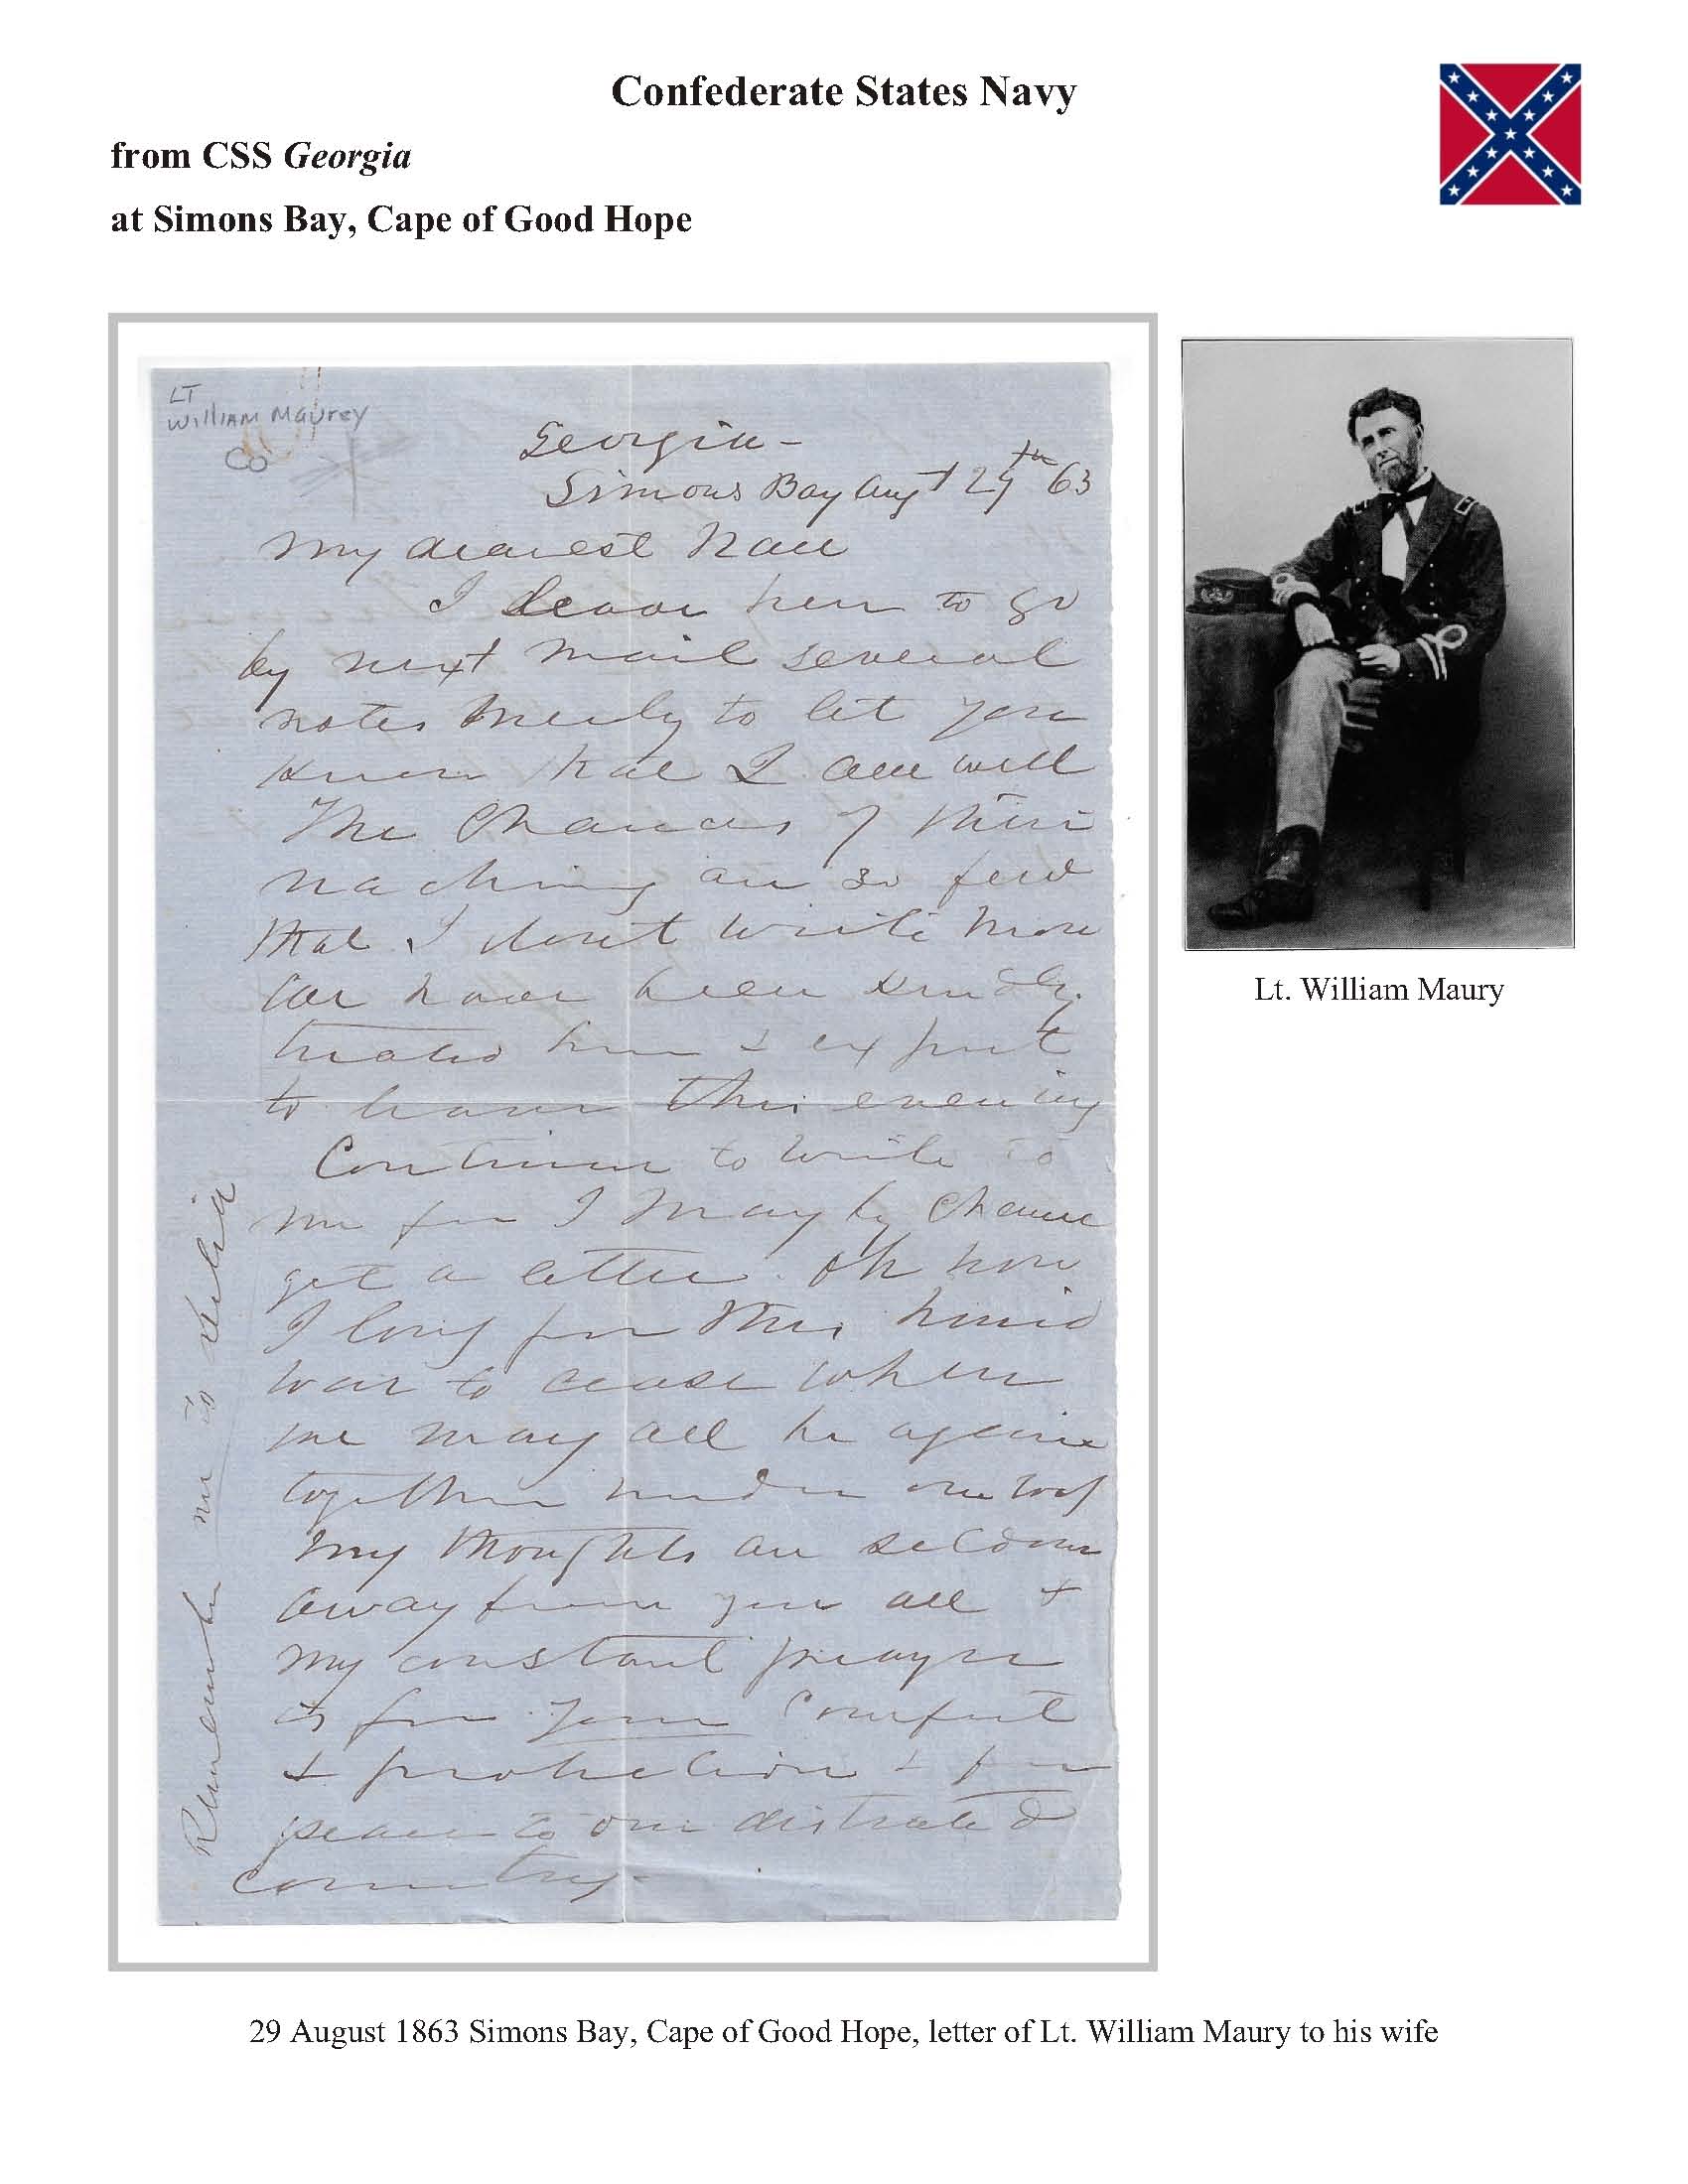 Confederate States Navy
from CSS Georgia
at Simons Bay, Cape of Good Hope
LT
William Maurey
CO
Georgia -
Simons Bay Augt 29th 63
My dearest Nan
I leave here to go
by next mail several
notes merely to let you
know that I am well
The Chances of their
reaching are so few
that I dont write more
We have been kindly
treated here & expect
to leave this evening
Continue to write to
me for I may by chance
get a letter. Oh how
I long for this horrid
war to cease when
we may all be again
together under one roof
My thoughts are seldom
away from you all &
my constant prayer
is for your Comfort
& protection & for
peace to our distracted
country-
Remember me to
Lt. William Maury
29 August 1863 Simons Bay, Cape of Good Hope, letter of Lt. William Maury to his wife